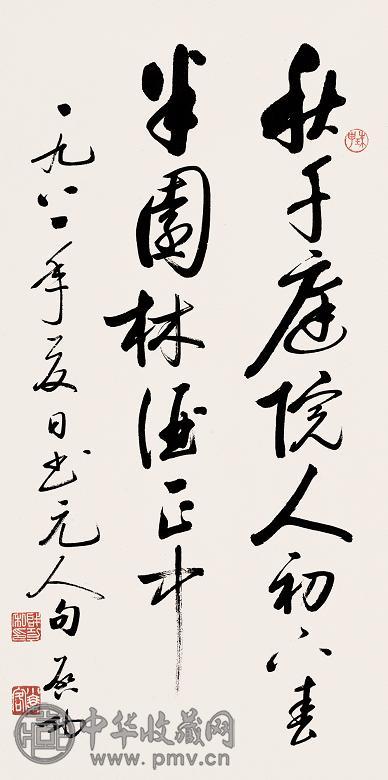 秋千庭院人初下春
半園林酒正中
一九八一年夏日书元人句 启功
中华收藏网
www.pmv.cn